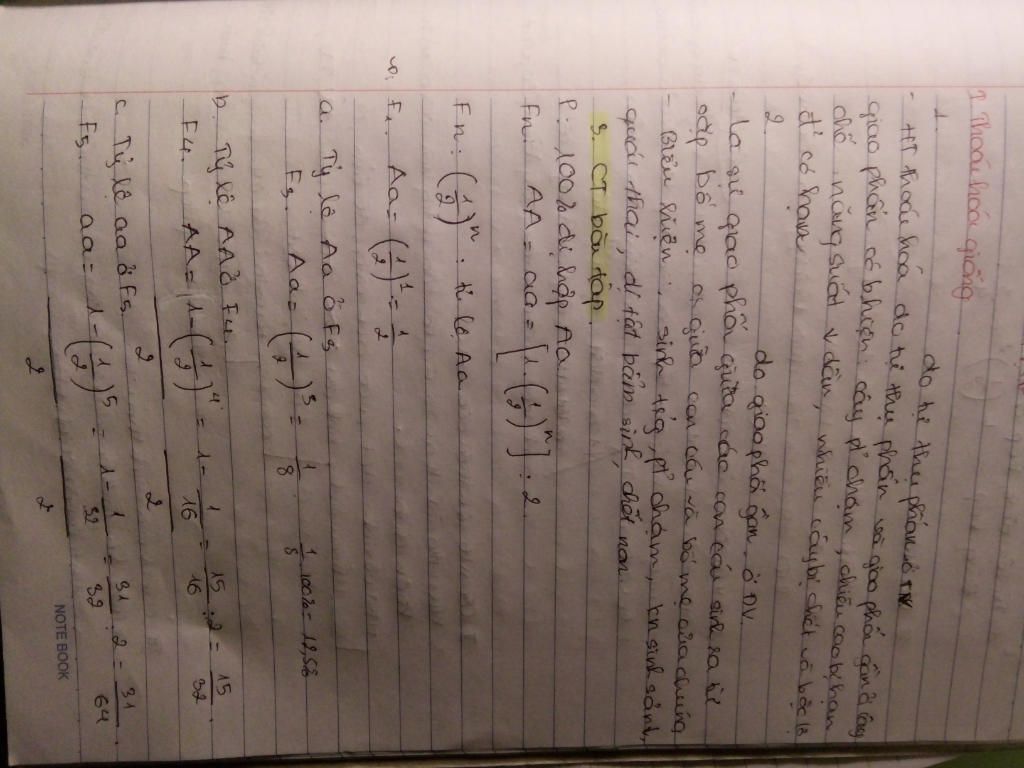 ? Thoái hoá giống
1. do tự thụ phấn ở TV
- HT thoái hoá do tự thụ phấn và giao phấn gần ở cây
giao phấn có b hiện: cây pt chậm, chiều cao b, hạn
chế năng suất v dần, nhiều cây bị chết và bộc lộ
đ² có hại.
2. do giao phối gần ở ĐV.
- là sự giao phối giữa các con cái sinh ra từ 1
cặp bố mẹ or giữa con cái và bố mẹ của chúng
- Biểu hiện: sinh trg, pt chậm, k n sinh sản,
quái thai, dị tật bẩm sinh, chết non
3. CT bài tập.
P: 100% dị hợp Aa
Fn: AA = aa = [1 - (1/2)^n] : 2
Fn: (1/2)^n : tỉ lệ Aa
F1: Aa = (1/2)^1 = 1/2
a. Tỷ lệ Aa ở F3
F3: Aa = (1/2)^3 = 1/8 . 1/8 100% = 12,5%
b. Tỷ lệ AA ở F4
F4: AA = 1 - (1/2)^4 / 2 = 1 - 1/16 / 2 = 15/16 : 2 = 15/32.
c. Tỷ lệ aa ở F5
F5: aa = 1 - (1/2)^5 / 2 = 1 - 1/32 / 2 = 31/32 : 2 = 31/64.
NOTEBOOK